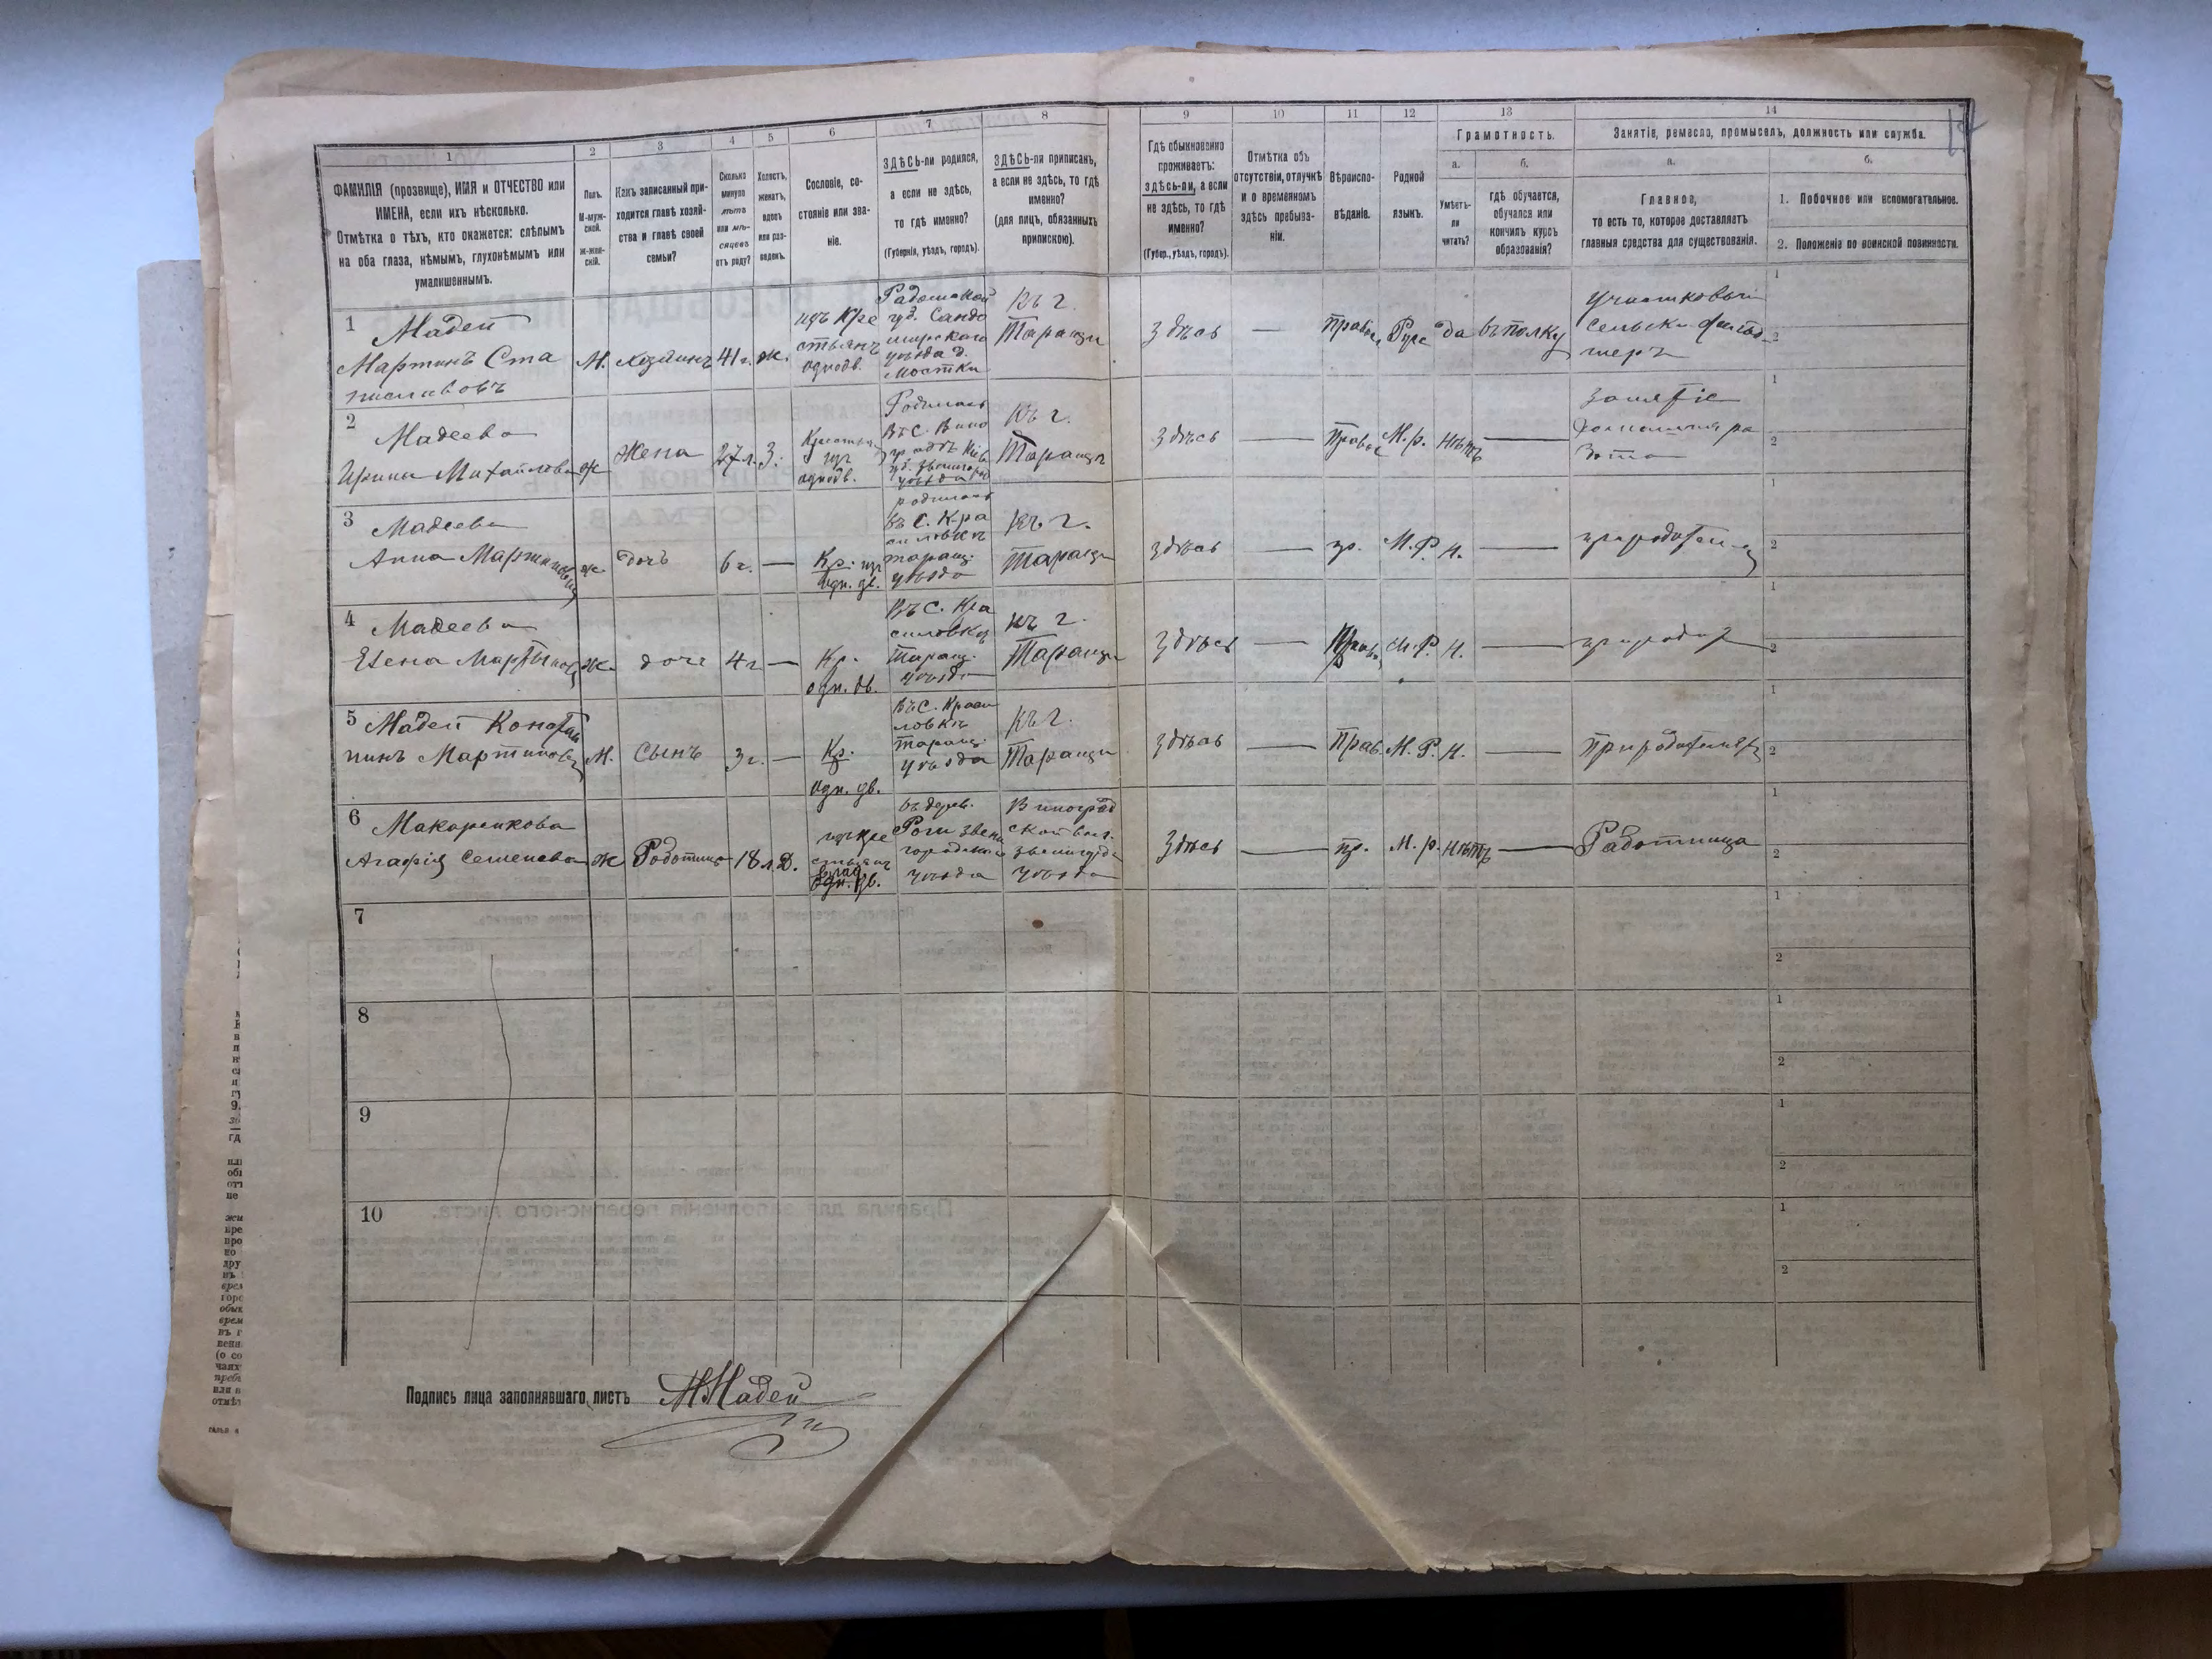 1
2
3
4
5
6
7
8
9
10
11
12
13
14
ФАМИЛІЯ (прозвище), ИМЯ и ОТЧЕСТВО или
ИМЕНА, если ихъ нѣсколько.
Отмѣтка о тѣхъ, кто окажется: слѣпымъ
на оба глаза, нѣмымъ, глухонѣмымъ или
умалишеннымъ.
Полъ.
М-муж-
ской.
Ж-жен-
скій.
Какъ записанный при-
ходится главѣ хозяй-
ства и главѣ своей
семьи?
Сколько
минуло
лѣтъ
или мѣ-
сяцевъ
отъ роду?
Холостъ,
женатъ,
вдовъ
или раз-
веденъ.
Сословіе, со-
стояніе или зва-
ніе.
ЗДѢСЬ-ли родился,
а если не здѣсь,
то гдѣ именно?
(Губернія, уѣздъ, городъ).
ЗДѢСЬ-ли приписанъ,
а если не здѣсь, то гдѣ
именно?
(для лицъ, обязанныхъ
припискою).
Гдѣ обыкновенно
проживаетъ:
здѣсь-ли, а если
не здѣсь, то гдѣ
именно?
(Губер., уѣздъ, городъ).
Отмѣтка объ
отсутствіи, отлучкѣ
и о временномъ
здѣсь пребыва-
ніи.
Вѣроиспо-
вѣданіе.
Родной
языкъ.
Грамотность.
а.
б.
Умѣетъ-
ли
читать?
гдѣ обучается,
обучался или
кончилъ курсъ
образованія?
Занятіе, ремесло, промыселъ, должность или служба.
а.
б.
Главное,
то есть то, которое доставляетъ
главныя средства для существованія.
1. Побочное или вспомогательное.
2. Положеніе по воинской повинности.
1
Мадей
Мартинъ Ста
ниславовъ
М.
хозяинъ
41 г.
ж.
изъ Кре
стьянъ
однодв.
Радомской
губ. Сандо
мирскаго
уѣзда д.
Мостки
Къ г.
Таращи
Здѣсь
—
Правос.
Русс
да
въ полку
Участковый
сельскій фельд
шеръ
1
2
2
Мадеева
Ирина Михайлова
ж
жена
27 л.
З.
Крестьян
изъ
однодв.
Родилась
въ С. Вино
градѣ Кіев
губ. Звенигород
уѣзда
Къ г.
Таращи
Здѣсь
—
Правос
М. р.
нѣтъ
—
Занятіе
домашняя ра
бота
1
2
3
Мадеева
Анна Мартинова
ж
дочь
6 г.
—
Кр. изъ
одн. дв.
родилась
въ С. Кра
силовкѣ
таращ.
уѣзда
Къ г.
Таращи
здѣсь
—
пр.
М. Р.
н.
—
1
2
4
Мадеева
Елена Мартынов
ж.
дочь
4 г.
—
Кр.
одн. дв.
Въ С. Кра
силовкѣ
Таращ.
уѣзда
Къ г.
Таращи
здѣсь
—
Прав.
М. Р.
н.
—
1
2
5
Мадей Констан
тинъ Мартиновъ
М.
сынъ
3 г.
—
Кр.
одн. дв.
Въ С. Краси
ловкѣ
Таращ.
уѣзда
Къ г.
Таращи
здѣсь
—
Прав.
М. Р.
н.
—
при родителяхъ
1
2
6
Макаренкова
Агафія Семенова
Ж
Работница
18 л.
Д.
изъ кре
стьянъ
въ дерев.
Роги звени
городскаго
уѣзда
Виноград
ской вол.
звенигород
уѣзда
Здѣсь
—
пр.
М. р.
нѣтъ
—
Работница
1
2
7
1
2
8
1
2
9
1
2
10
1
2
Подпись лица заполнявшаго листъ
ММадей